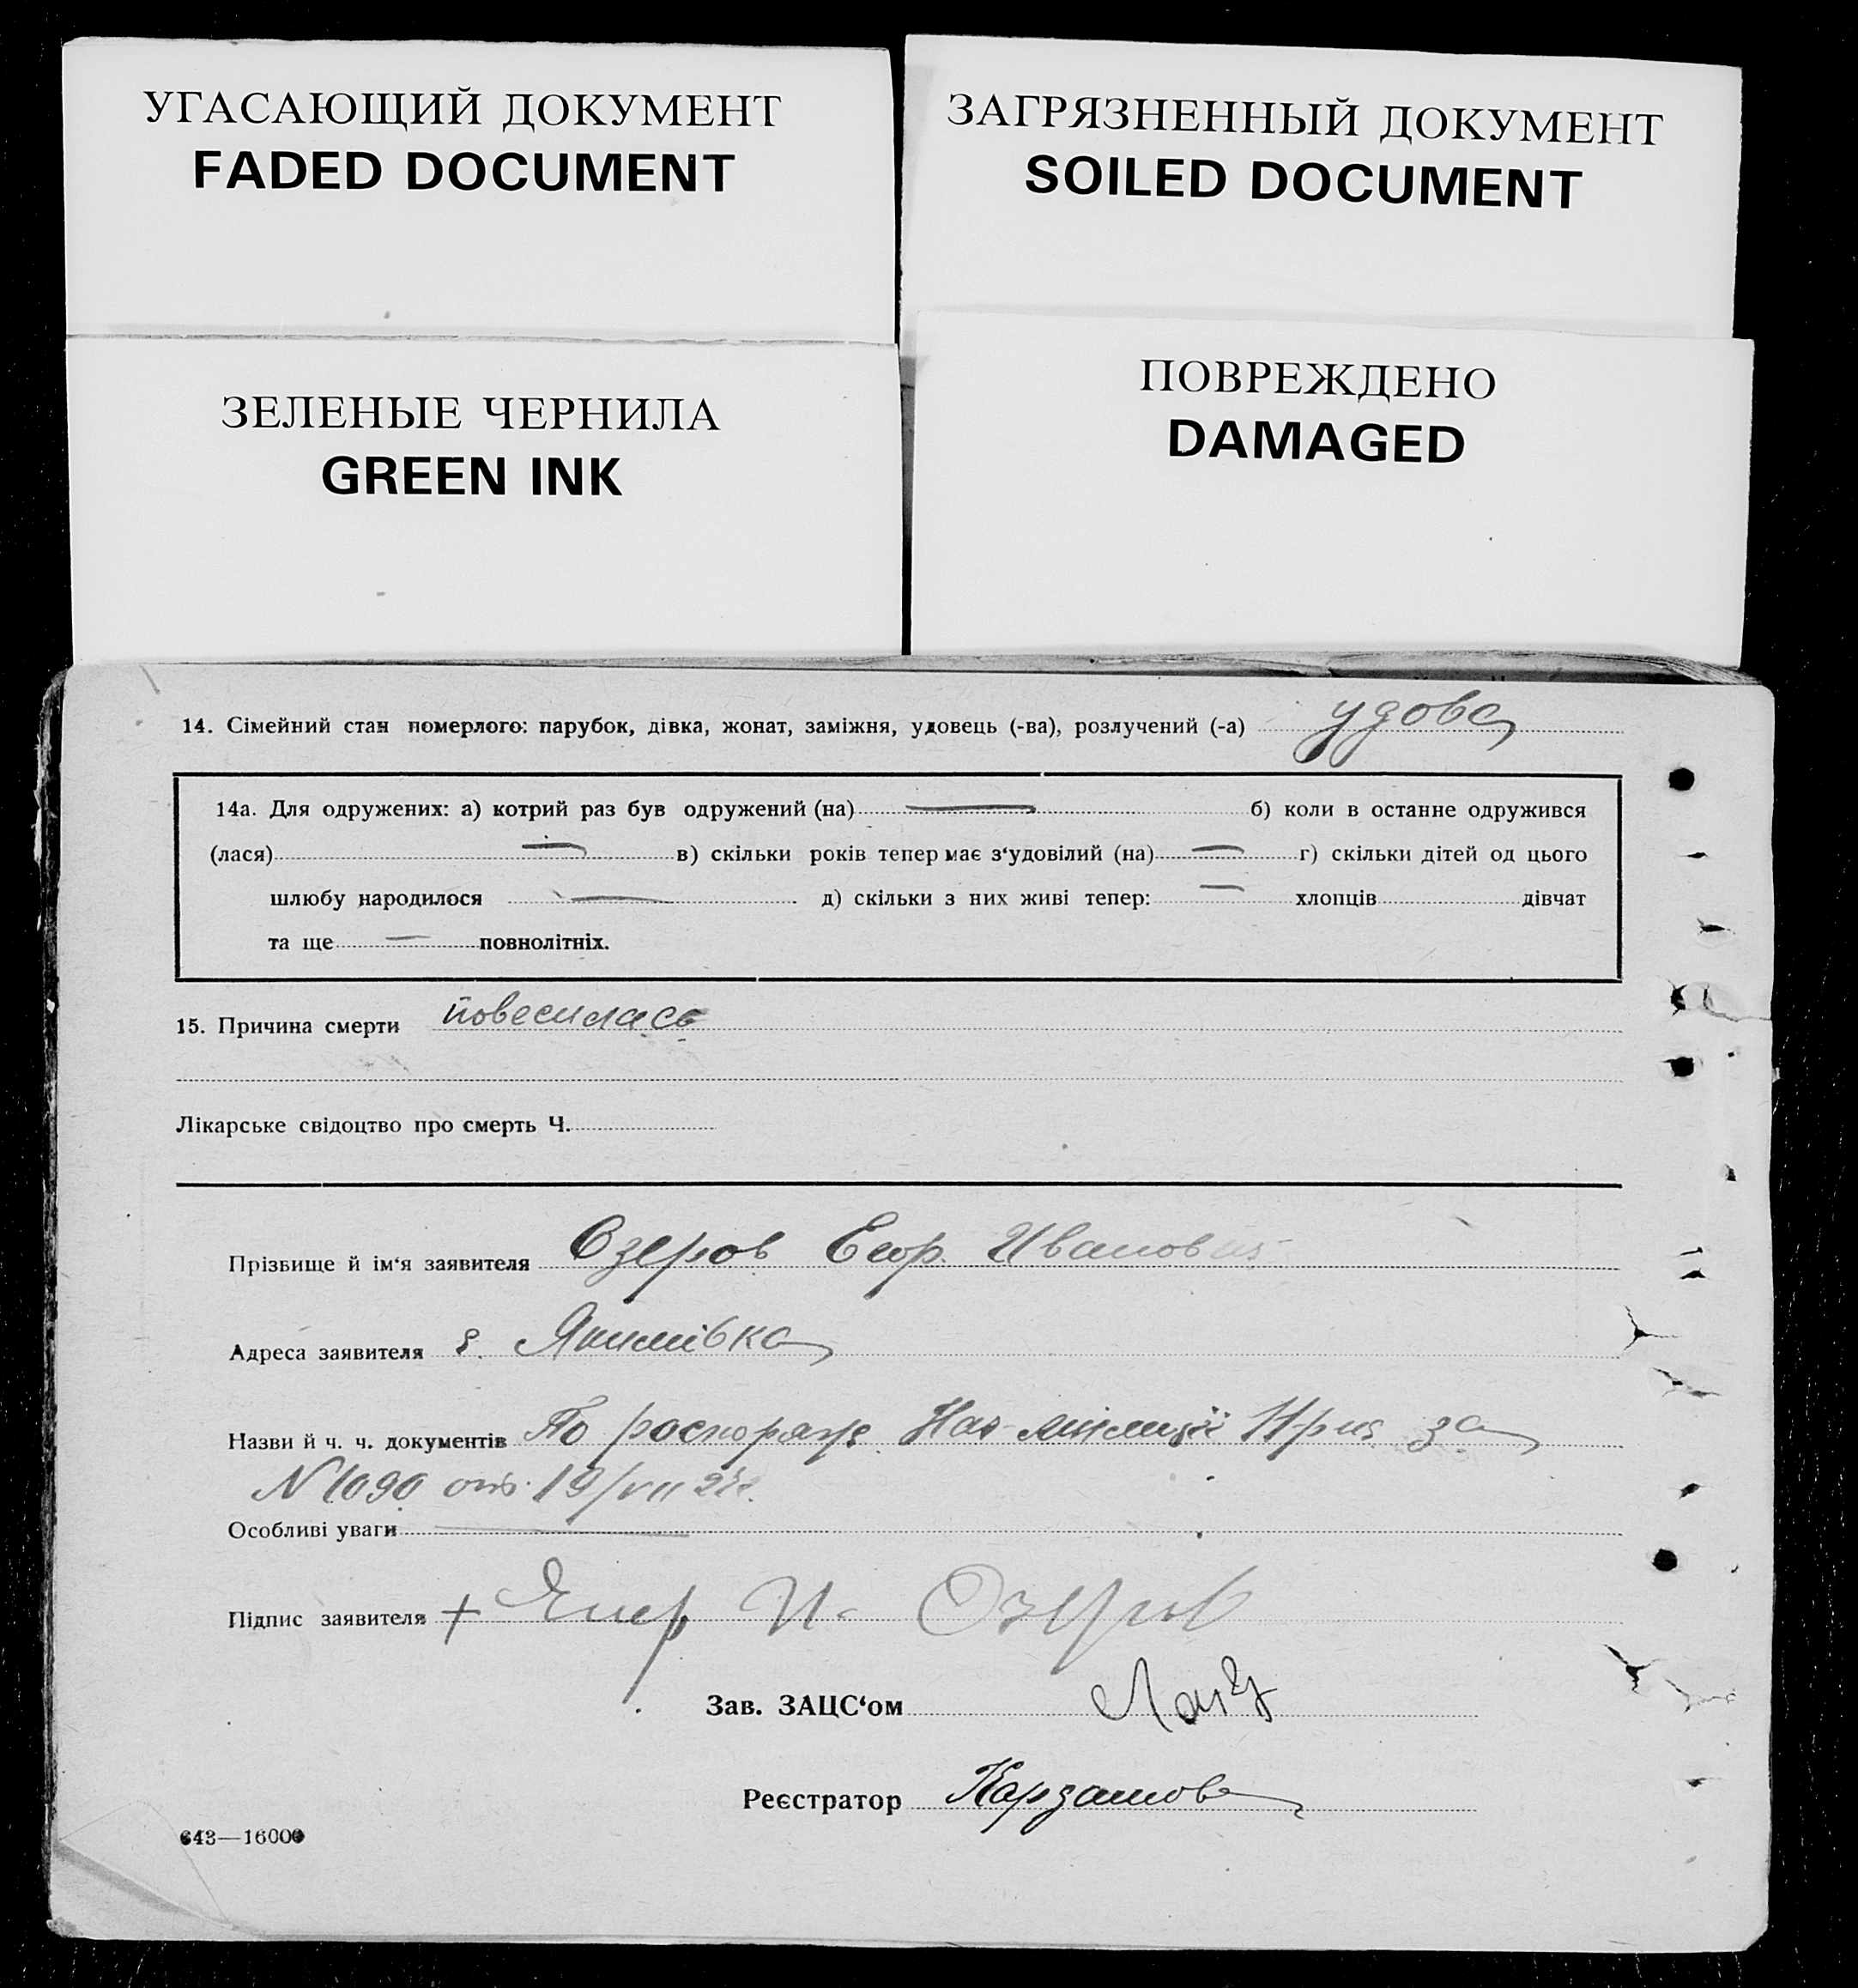 УГАСАЮЩИЙ ДОКУМЕНТ
FADED DOCUMENT
ЗАГРЯЗНЕННЫЙ ДОКУМЕНТ
SOILED DOCUMENT
ЗЕЛЕНЫЕ ЧЕРНИЛА
GREEN INK
ПОВРЕЖДЕНО
DAMAGED
14. Сімейний стан померлого: парубок, дівка, жонат, заміжня, удовець (-ва), розлучений (-а) удова
14а. Для одружених: а) котрий раз був одружений (на) — б) коли в останне одружився
(лася) — в) скільки років тепер має з‘удовілий (на) — г) скільки дітей од цього
шлюбу народилося — д) скільки з них живі тепер: — хлопців дівчат
та ще — повнолітніх.
15. Причина смерти повесилась
Лікарське свідоцтво про смерть Ч.
Прізвище й ім‘я заявителя Озеров Егор Иванович
Адреса заявителя с. Якимівка
Назви й ч. ч. документів По Нач. міліції за
N 1090 от 19/VII
Особливі уваги —
Підпис заявителя + Егор И. Озеров
Зав. ЗАЦС‘ом
Реєстратор
643—16000